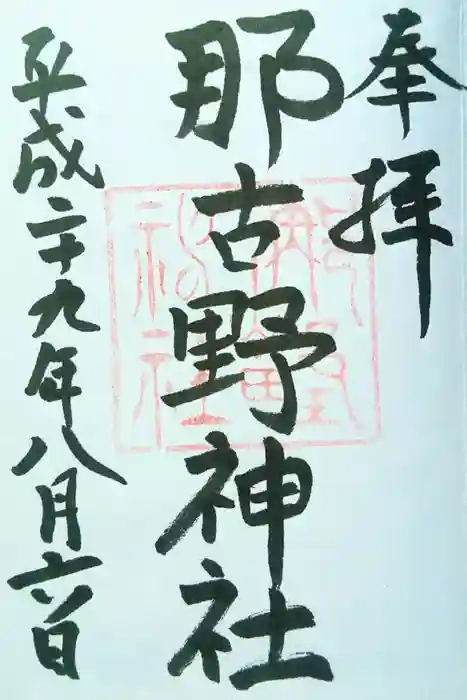 奉拝
那古野神社
平成二十九年八月六日